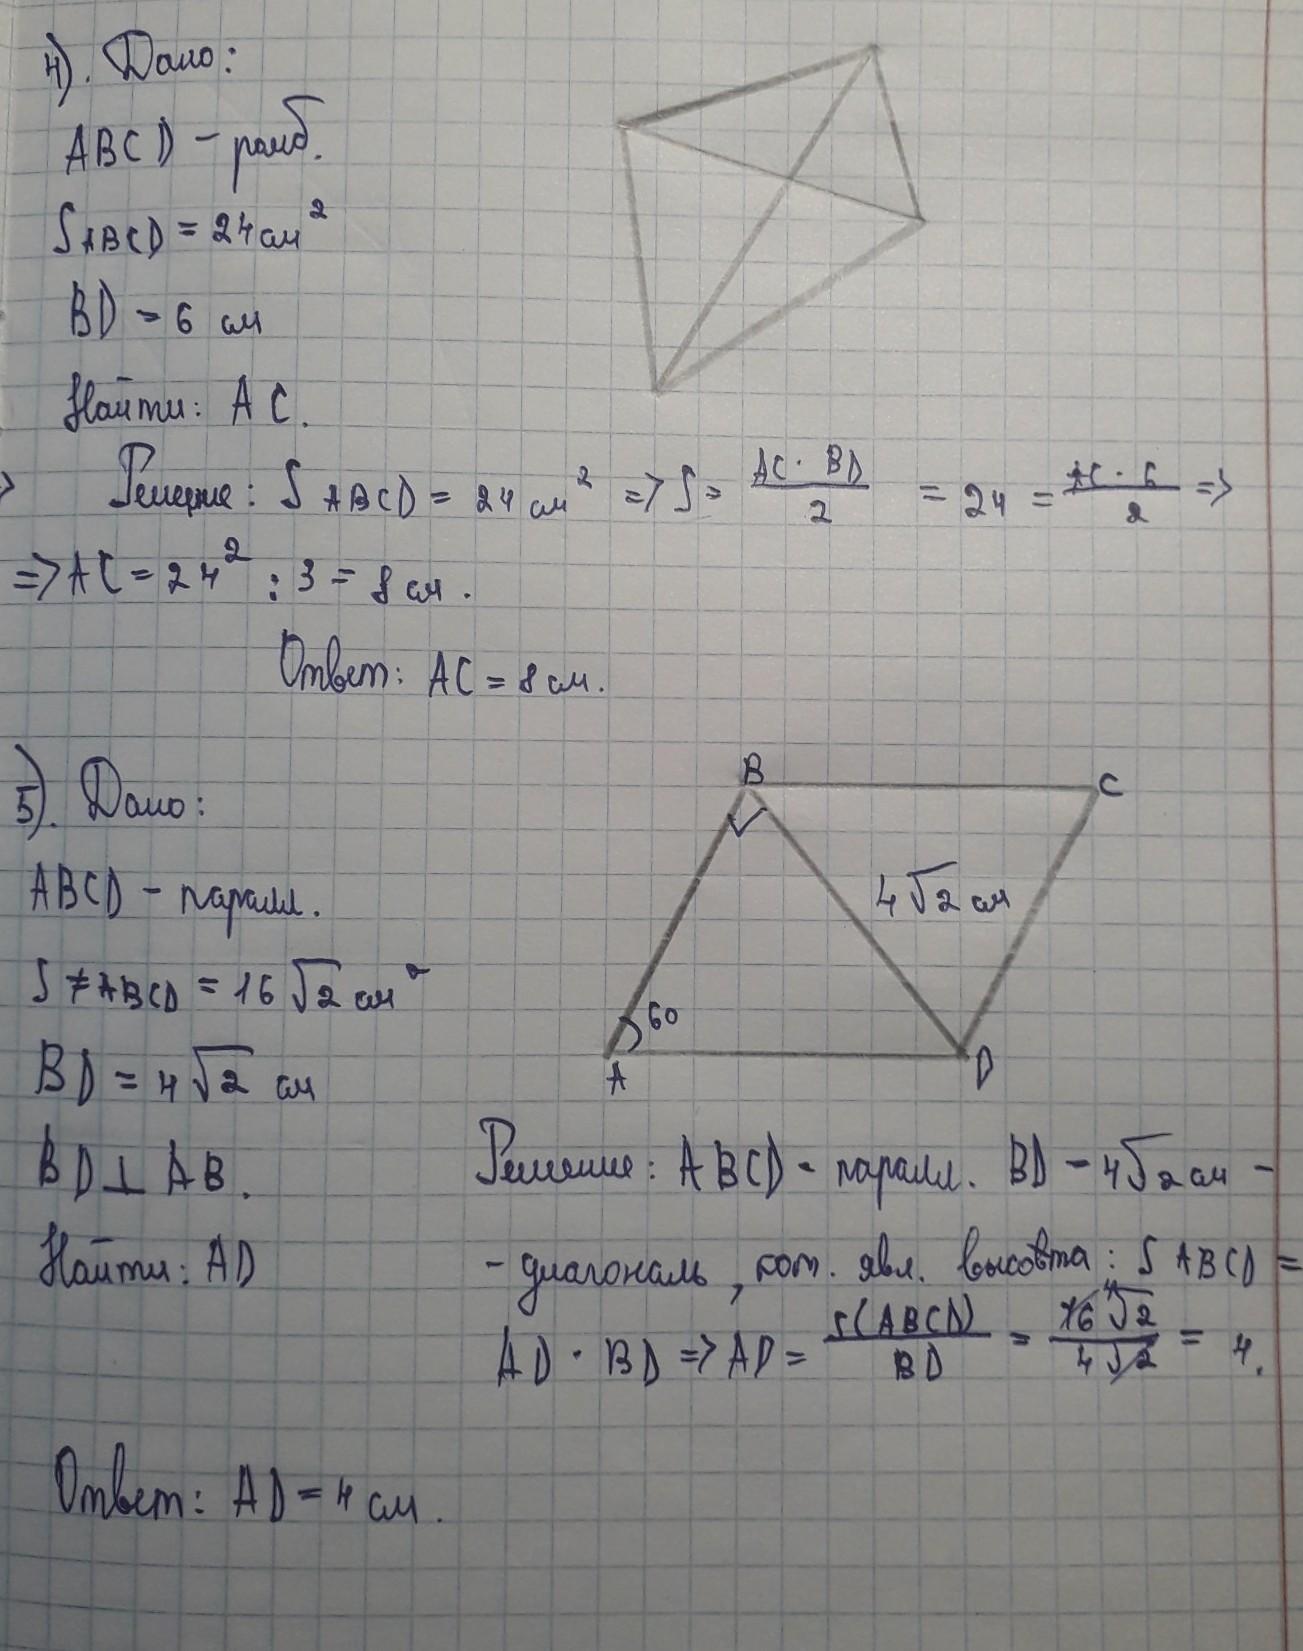 4). Дано:
ABCD - ромб.
S ABCD = 24 см²
BD = 6 см
Найти: AC.
Решение: S ABCD = 24 см² => S = AC · BD / 2 = 24 = AC · 6 / 2 =>
=> AC = 24² : 3 = 8 см.
Ответ: AC = 8 см.
5). Дано:
B C
4√2 см
60
A D
ABCD - паралл.
S ABCD = 16√2 см²
BD = 4√2 см
BD ⊥ AB.
Найти: AD
Решение: ABCD - паралл. BD - 4√2 см -
- диагональ, кот. явл. высовта: S ABCD =
AD · BD => AD = S(ABCD) / BD = 16 4 √2 / 4√2 = 4.
Ответ: AD = 4 см.